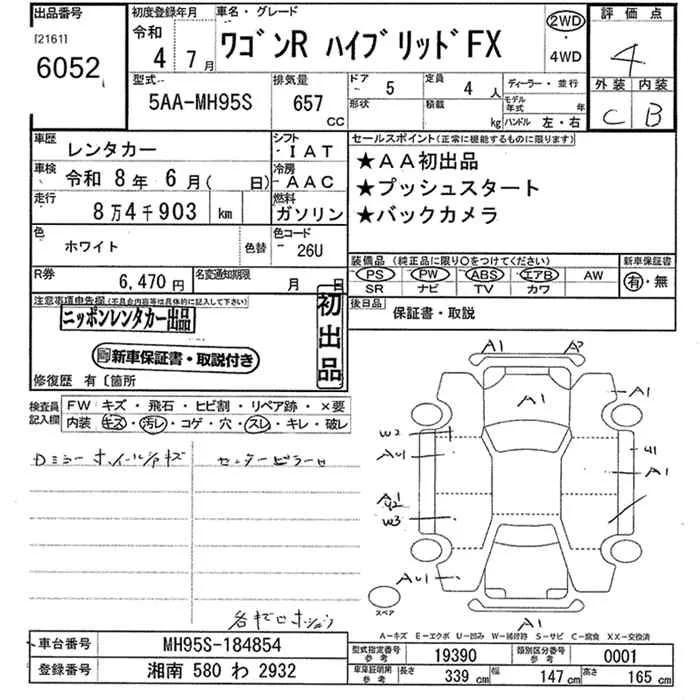 出品番号
[2161]
6052
初度登録年月
令和 4年 7月
車名・グレード
ワゴンR ハイブリッドFX
2WD
・
4WD
評価点
4
外装 内装
C B
型式
5AA-MH95S
排気量
657 CC
ドア 5
形状
定員 4 人
積載 kg
ディーラー・並行
モデル年式 年
ハンドル 左・右
車歴 レンタカー
シフト IAT
車検 令和 8年 6月( 日)
冷房 AAC
走行 8万4千903 km
燃料 ガソリン
色 ホワイト
色替
色コード 26U
R券 6,470円
名変通知期限 月 日
セールスポイント(正常に機能するものに限ります)
★AA初出品
★プッシュスタート
★バックカメラ
装備品 (純正品に限り○をつけてください)
PS PW ABS エアB AW
SR ナビ TV カワ
新車保証書
有・無
後日品 保証書・取説
注意事項申告欄(不具合内容等は具体的に記入して下さい)
ニッポンレンタカー出品
新車保証書・取説付き
初出品
修復歴 有〔箇所
検査員記入欄
FW キズ・飛石・ヒビ割・リペア跡・×要
内装 キズ・汚レ・コゲ・穴・スレ・キレ・破レ
A1
A1
A1
W2
AU1
U1
A1
A1
W3
AU1
A1
スペア
A−キズ E−エクボ U−凹み W−補修跡 S−サビ C−腐食 XX−交換済
車台番号 MH95S-184854
登録番号 湘南 580 わ 2932
型式指定番号 参考 19390
類別区分番号 参考 0001
車庫証明用 参考 長さ 339 cm 幅 147 cm 高さ 165 cm